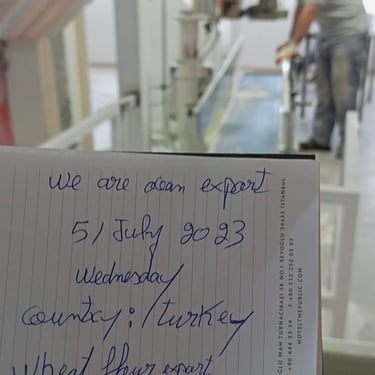 we are dean expart
5/July 2023
Wednesday
Country: Turkey
Wheat flour expart
OĞLU MAH TURNACIBAŞI SK NO 1 BEYOĞLU 34433 İSTANBUL
+90 444 33 34 F +90 212 232 03 03
HOTELTHEPUBLIC.COM